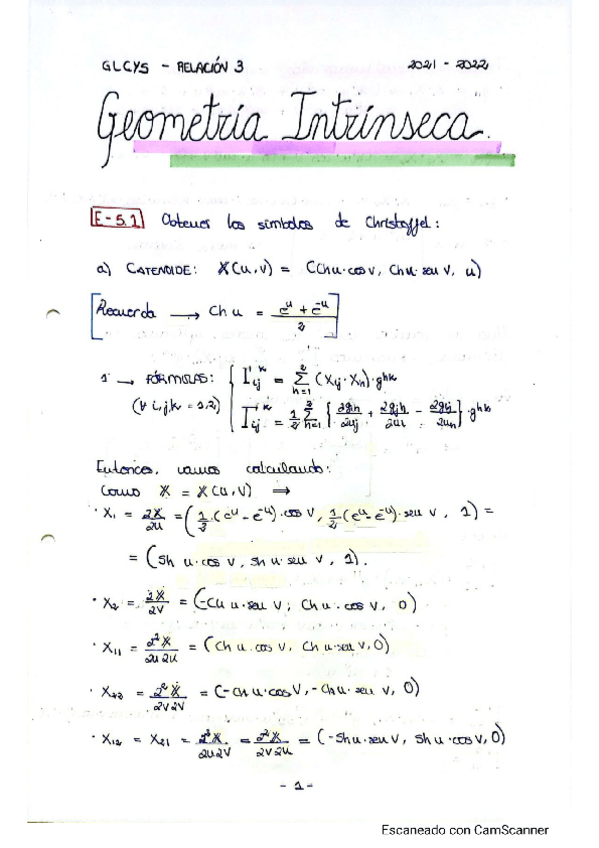 GLCYS - RELACIÓN 3 2021 - 2022
Geometría Intrínseca.
E-5.1 Obtener los símbolos de Christoffel:
a) CATENOIDE: X(u,v) = (Chu·cos v, Chu·seu v, u)
Recuerda → Ch u = (e^u + e^-u)/2
1º → FÓRMULAS: { Γij^k = Σ(h=1, 2) (Xij·Xh)·g^hk
(∀ i,j,k = 1,2) Γij^k = 1/2 Σ(h=1, 2) { ∂gih/∂uj + ∂gjh/∂ui - ∂gij/∂uh } · g^hk
Entonces, vamos calculando:
Como X = X(u,v) ⟹
· X1 = ∂X/∂u = (1/2·(e^u - e^-u)·cos v, 1/2·(e^u - e^-u)·seu v, 1) =
= (Sh u·cos v, Sh u·seu v, 1).
· X2 = ∂X/∂v = (-Ch u·seu v, Ch u·cos v, 0)
· X11 = ∂²X/∂u∂u = (Ch u·cos v, Ch u·seu v, 0)
· X22 = ∂²X/∂v∂v = (-Ch u·cos v, -Ch u·seu v, 0)
· X12 = X21 = ∂²X/∂u∂v = ∂²X/∂v∂u = (-Sh u·seu v, Sh u·cos v, 0)
- 1 -
Escaneado con CamScanner